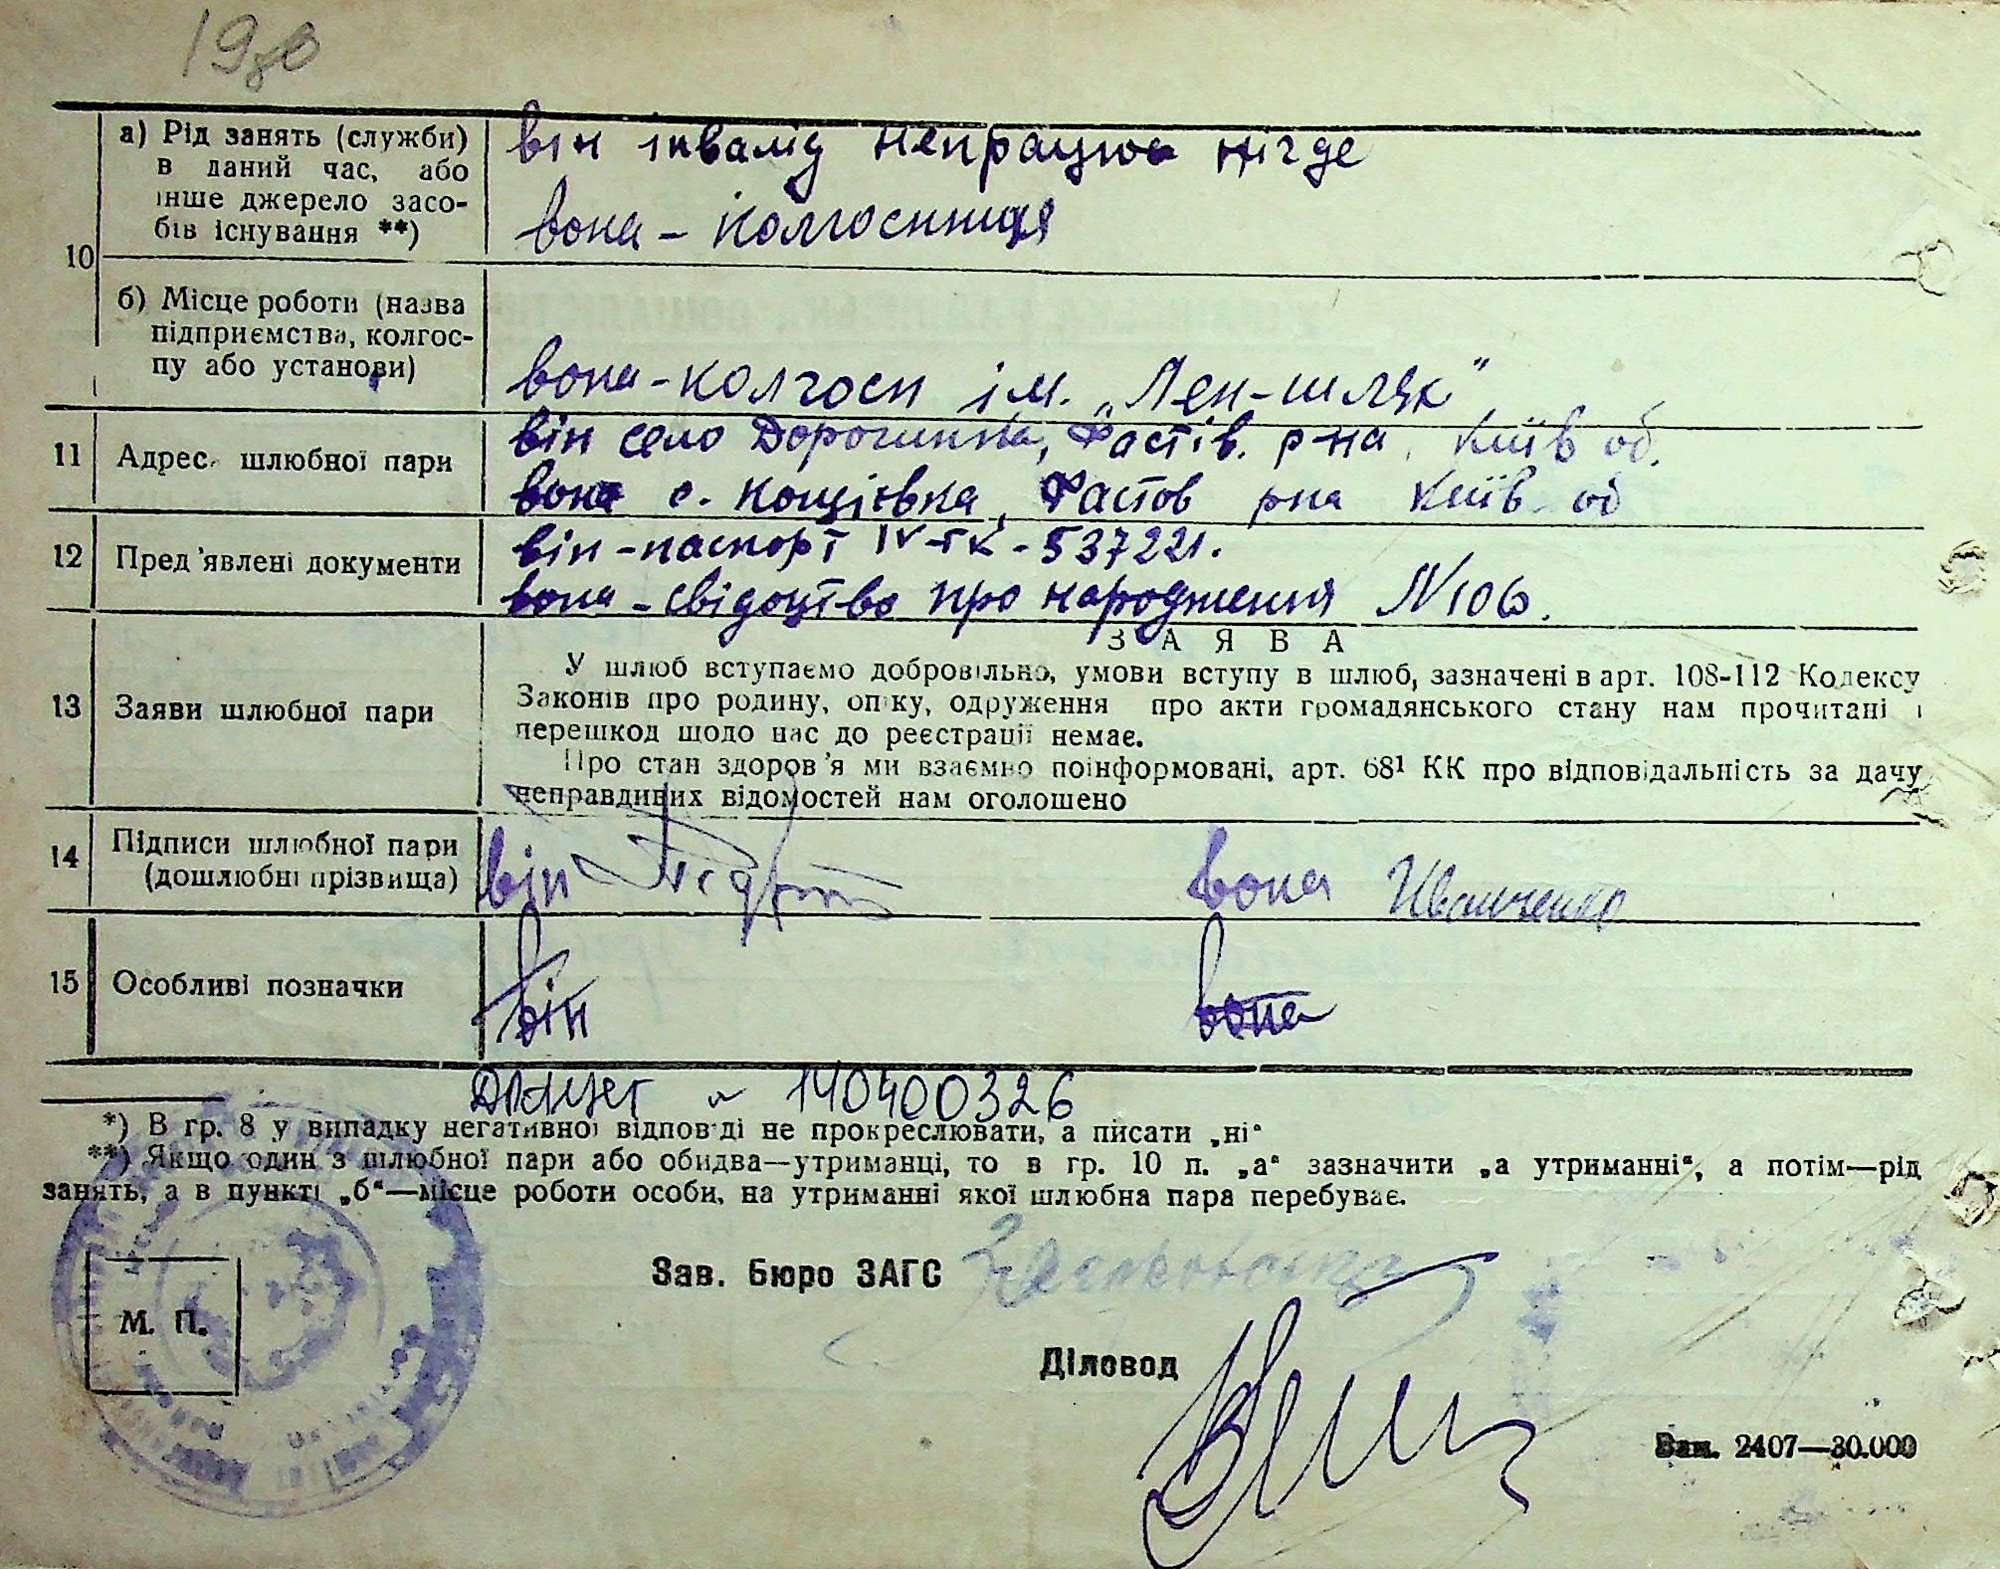 10
а) Рід занять (служби)
в даний час, або
інше джерело засо-
бів існування **)
він інвалід непрацює нігде
вона - колгоспниця
б) Місце роботи (назва
підприємства, колгос-
пу або установи)
вона - колгосп ім. „Лен-шлях"
11 Адрес шлюбної пари
він село Дорогинка, Фастів. р-на, Київ об.
вона с. Кощіївка, Фастов рна Київ об
12 Пред'явлені документи
він - паспорт IV-ГК - 537221.
вона - свідоцтво про народження №106.
13 Заяви шлюбної пари
ЗАЯВА
У шлюб вступаємо добровільно, умови вступу в шлюб, зазначені в арт. 108-112 Кодексу
Законів про родину, опіку, одруження про акти громадянського стану нам прочитані і
перешкод щодо нас до реєстрації немає.
Про стан здоров'я ми взаємно поінформовані, арт. 68¹ КК про відповідальність за дачу
неправдивих відомостей нам оголошено
14 Підписи шлюбної пари
(дошлюбні прізвища)
він вона Иванченко
15 Особливі позначки
він вона
140400326
*) В гр. 8 у випадку негативної відповіді не прокреслювати, а писати „ні“
**) Якщо один з шлюбної пари або обидва—утриманці, то в гр. 10 п. „а“ зазначити „а утриманні“, а потім—рід
занять, а в пункті „б“—місце роботи особи, на утриманні якої шлюбна пара перебуває.
Зав. Бюро ЗАГС
М. П.
Діловод
Зам. 2407—30.000